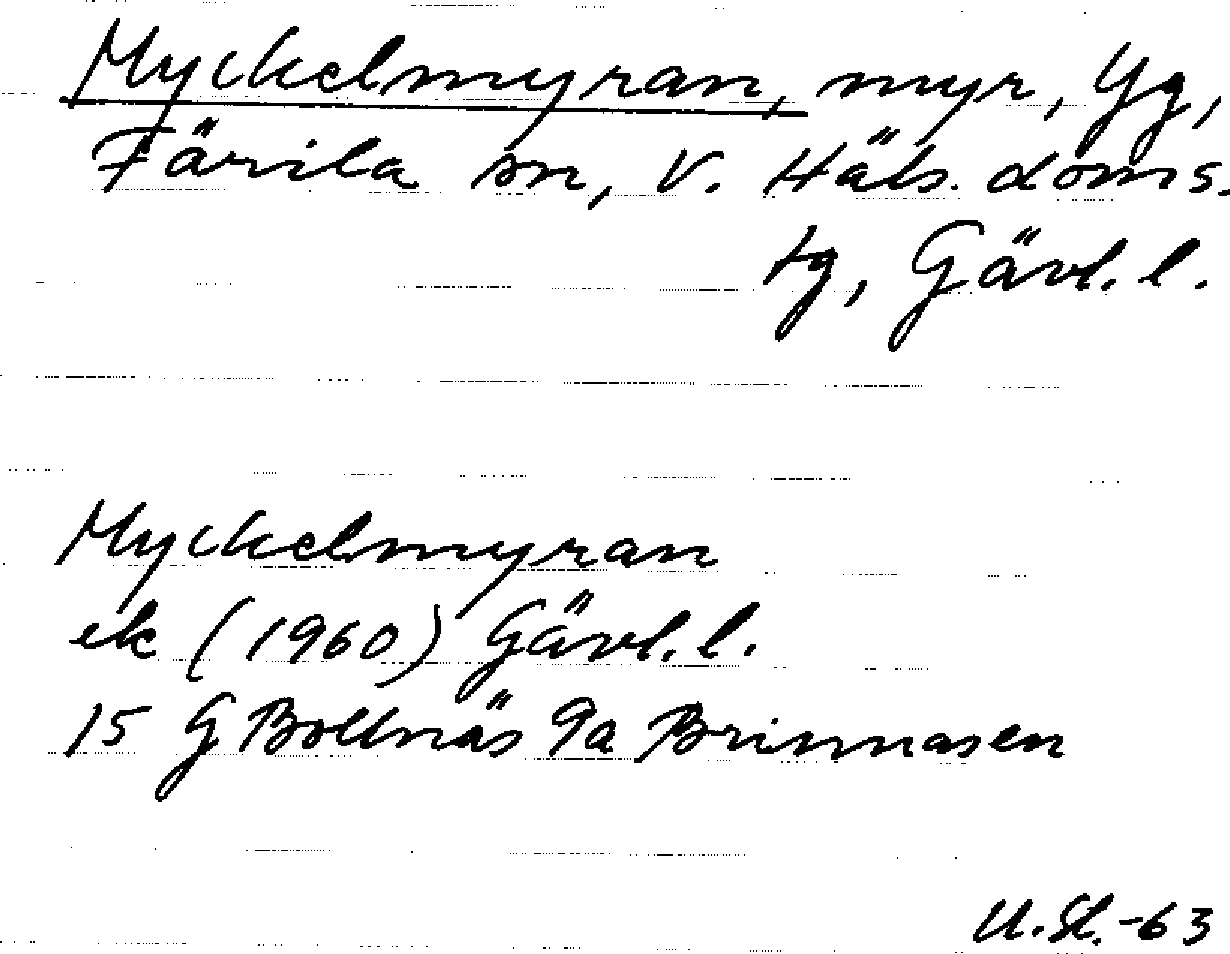 Myckelmyran, myr, Yg,
Färila sn, V. Häls. doms.
tg, Gävl. l.
Myckelmyran
ek (1960) Gävl. l.
15 G Bollnäs 9a Brinnåsen
U. St. -63